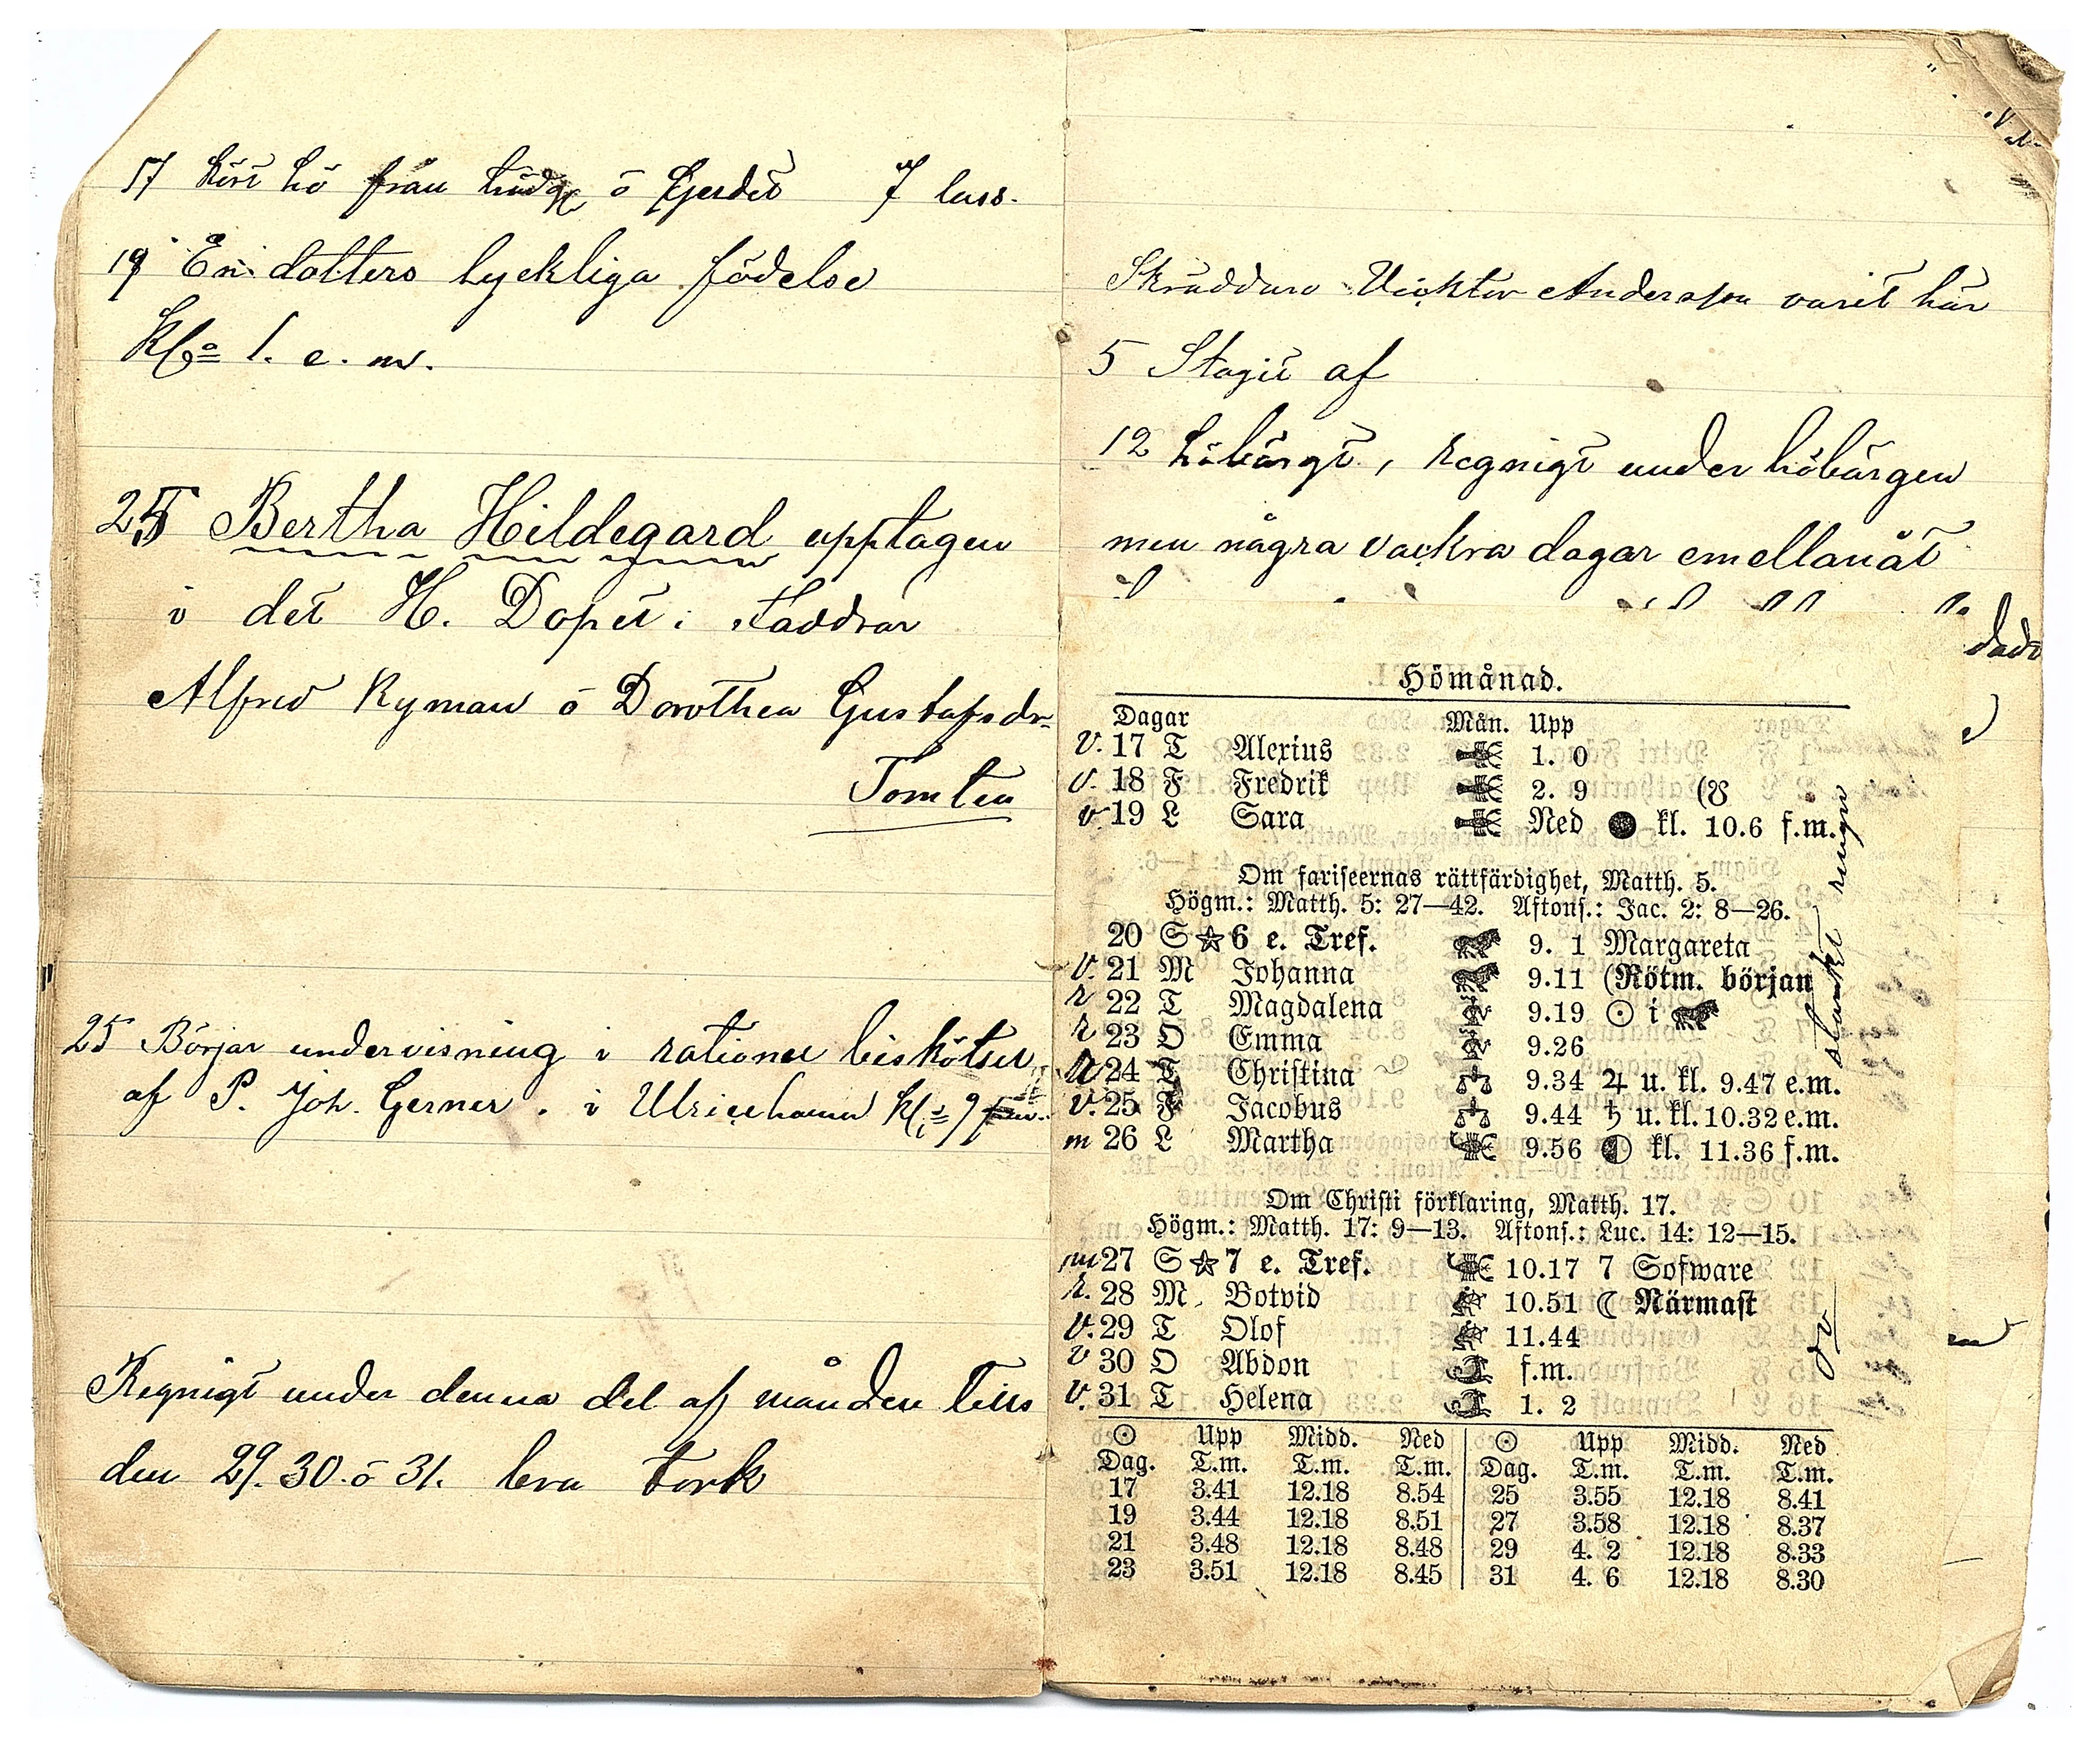 17 kört hö från ö Gjerdet 7 lass.
19 En dotters lyckliga födelse
Kl. 1. e. m.
25 Bertha Hildegard upptagen
i det H. Dopet; Faddrar
Alfred Ryman ö Dorothea Gustafsdr
Tomten
25 Börjar undervisning i rationel biskötsel
af P. Joh. Gerner. i Ulricehamn kl. 9
Regnigt under denna del af månden tills
den 29. 30. ö 31. bra tork
Skräddare Vicktor Andersson varit här
5 Stagit af
12 höbärgt, regnigt under höbärgen
men några vackra dagar emellanåt
Hömånad.
Dagar Mån. Upp
v. 17 T Alexius 1. 0
v. 18 F Fredrik 2. 9 (☋
v. 19 L Sara Ned ● kl. 10.6 f.m.
Om fariseernas rättfärdighet, Matth. 5.
Högm.: Matth. 5: 27—42. Aftons.: Jac. 2: 8—26.
20 S ☆ 6 e. Tref. 9. 1 Margareta
v. 21 M Johanna 9.11 (Rötm. början
r 22 T Magdalena 9.19 ☉ i ♌
r 23 O Emma 9.26
r 24 T Christina 9.34 ♃ u. kl. 9.47 e.m.
v. 25 F Jacobus 9.44 ♄ u. kl. 10.32 e.m.
m 26 L Martha 9.56 ◐ kl. 11.36 f.m.
Om Christi förklaring, Matth. 17.
Högm.: Matth. 17: 9—13. Aftons.: Luc. 14: 12—15.
m 27 S ☆ 7 e. Tref. 10.17 7 Sofware
r. 28 M. Botvid 10.51 ☾ Närmast
v. 29 T Olof 11.44
v 30 O Abdon f.m.
v. 31 T Helena 1. 2
☉ Upp Midd. Ned ☉ Upp Midd. Ned
Dag. T.m. T.m. T.m. Dag. T.m. T.m. T.m.
17 3.41 12.18 8.54 25 3.55 12.18 8.41
19 3.44 12.18 8.51 27 3.58 12.18 8.37
21 3.48 12.18 8.48 29 4. 2 12.18 8.33
23 3.51 12.18 8.45 31 4. 6 12.18 8.30